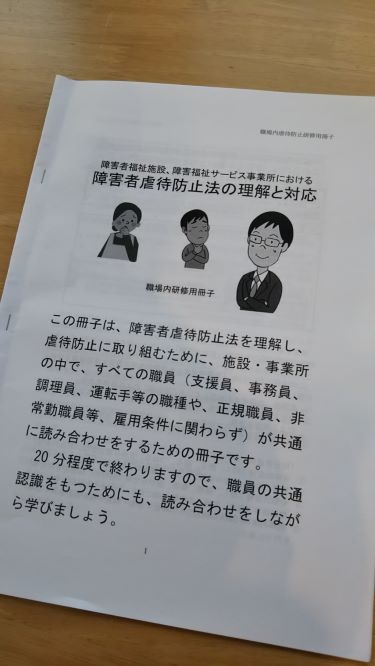 職場内虐待防止研修用冊子
障害者福祉施設、障害福祉サービス事業所における
障害者虐待防止法の理解と対応
職場内研修用冊子
この冊子は、障害者虐待防止法を理解し、
虐待防止に取り組むために、施設・事業所
の中で、すべての職員（支援員、事務員、
調理員、運転手等の職種や、正規職員、非
常勤職員等、雇用条件に関わらず）が共通
に読み合わせをするための冊子です。
20 分程度で終わりますので、職員の共通
認識をもつためにも、読み合わせをしなが
ら学びましょう。
1